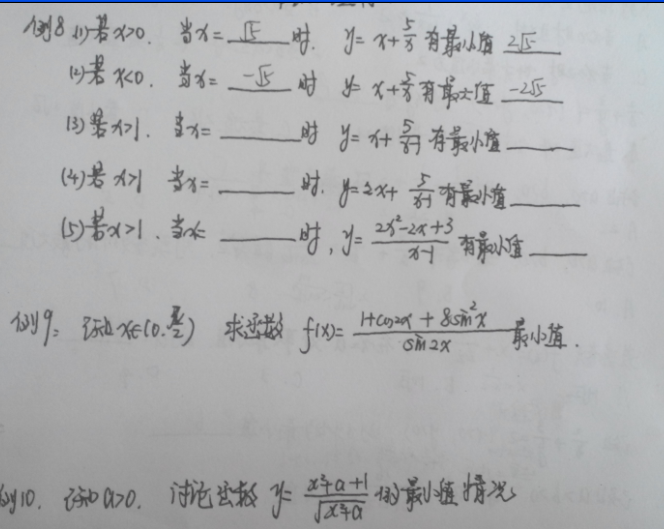 例8 (1)若x>0. 当x=√5时. y=x+5/x有最小值2√5
(2)若x<0. 当x=-√5时 y=x+5/x有最大值-2√5
(3)若x>1. 当x=______时 y=x+5/(x-1)有最小值______
(4)若x>1 当x=______时. y=2x+5/(x-1)有最小值______
(5)若x>1. 当x=______时, y=(2x²-2x+3)/(x-1)有最小值______
例9: 已知x∈(0.π/2) 求函数 f(x)=(1+cos2x+8sin²x)/sin2x 最小值.
例10. 已知a>0. 讨论函数 y=(x²+a+1)/√(x²+a) 的最小值情况